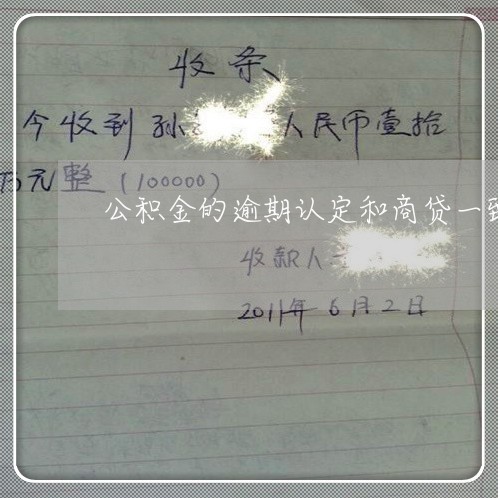 收条
今收到孙 人民币壹拾
万元整(100000)
公积金的逾期认定和商贷一致
收款人
2011年6月2日